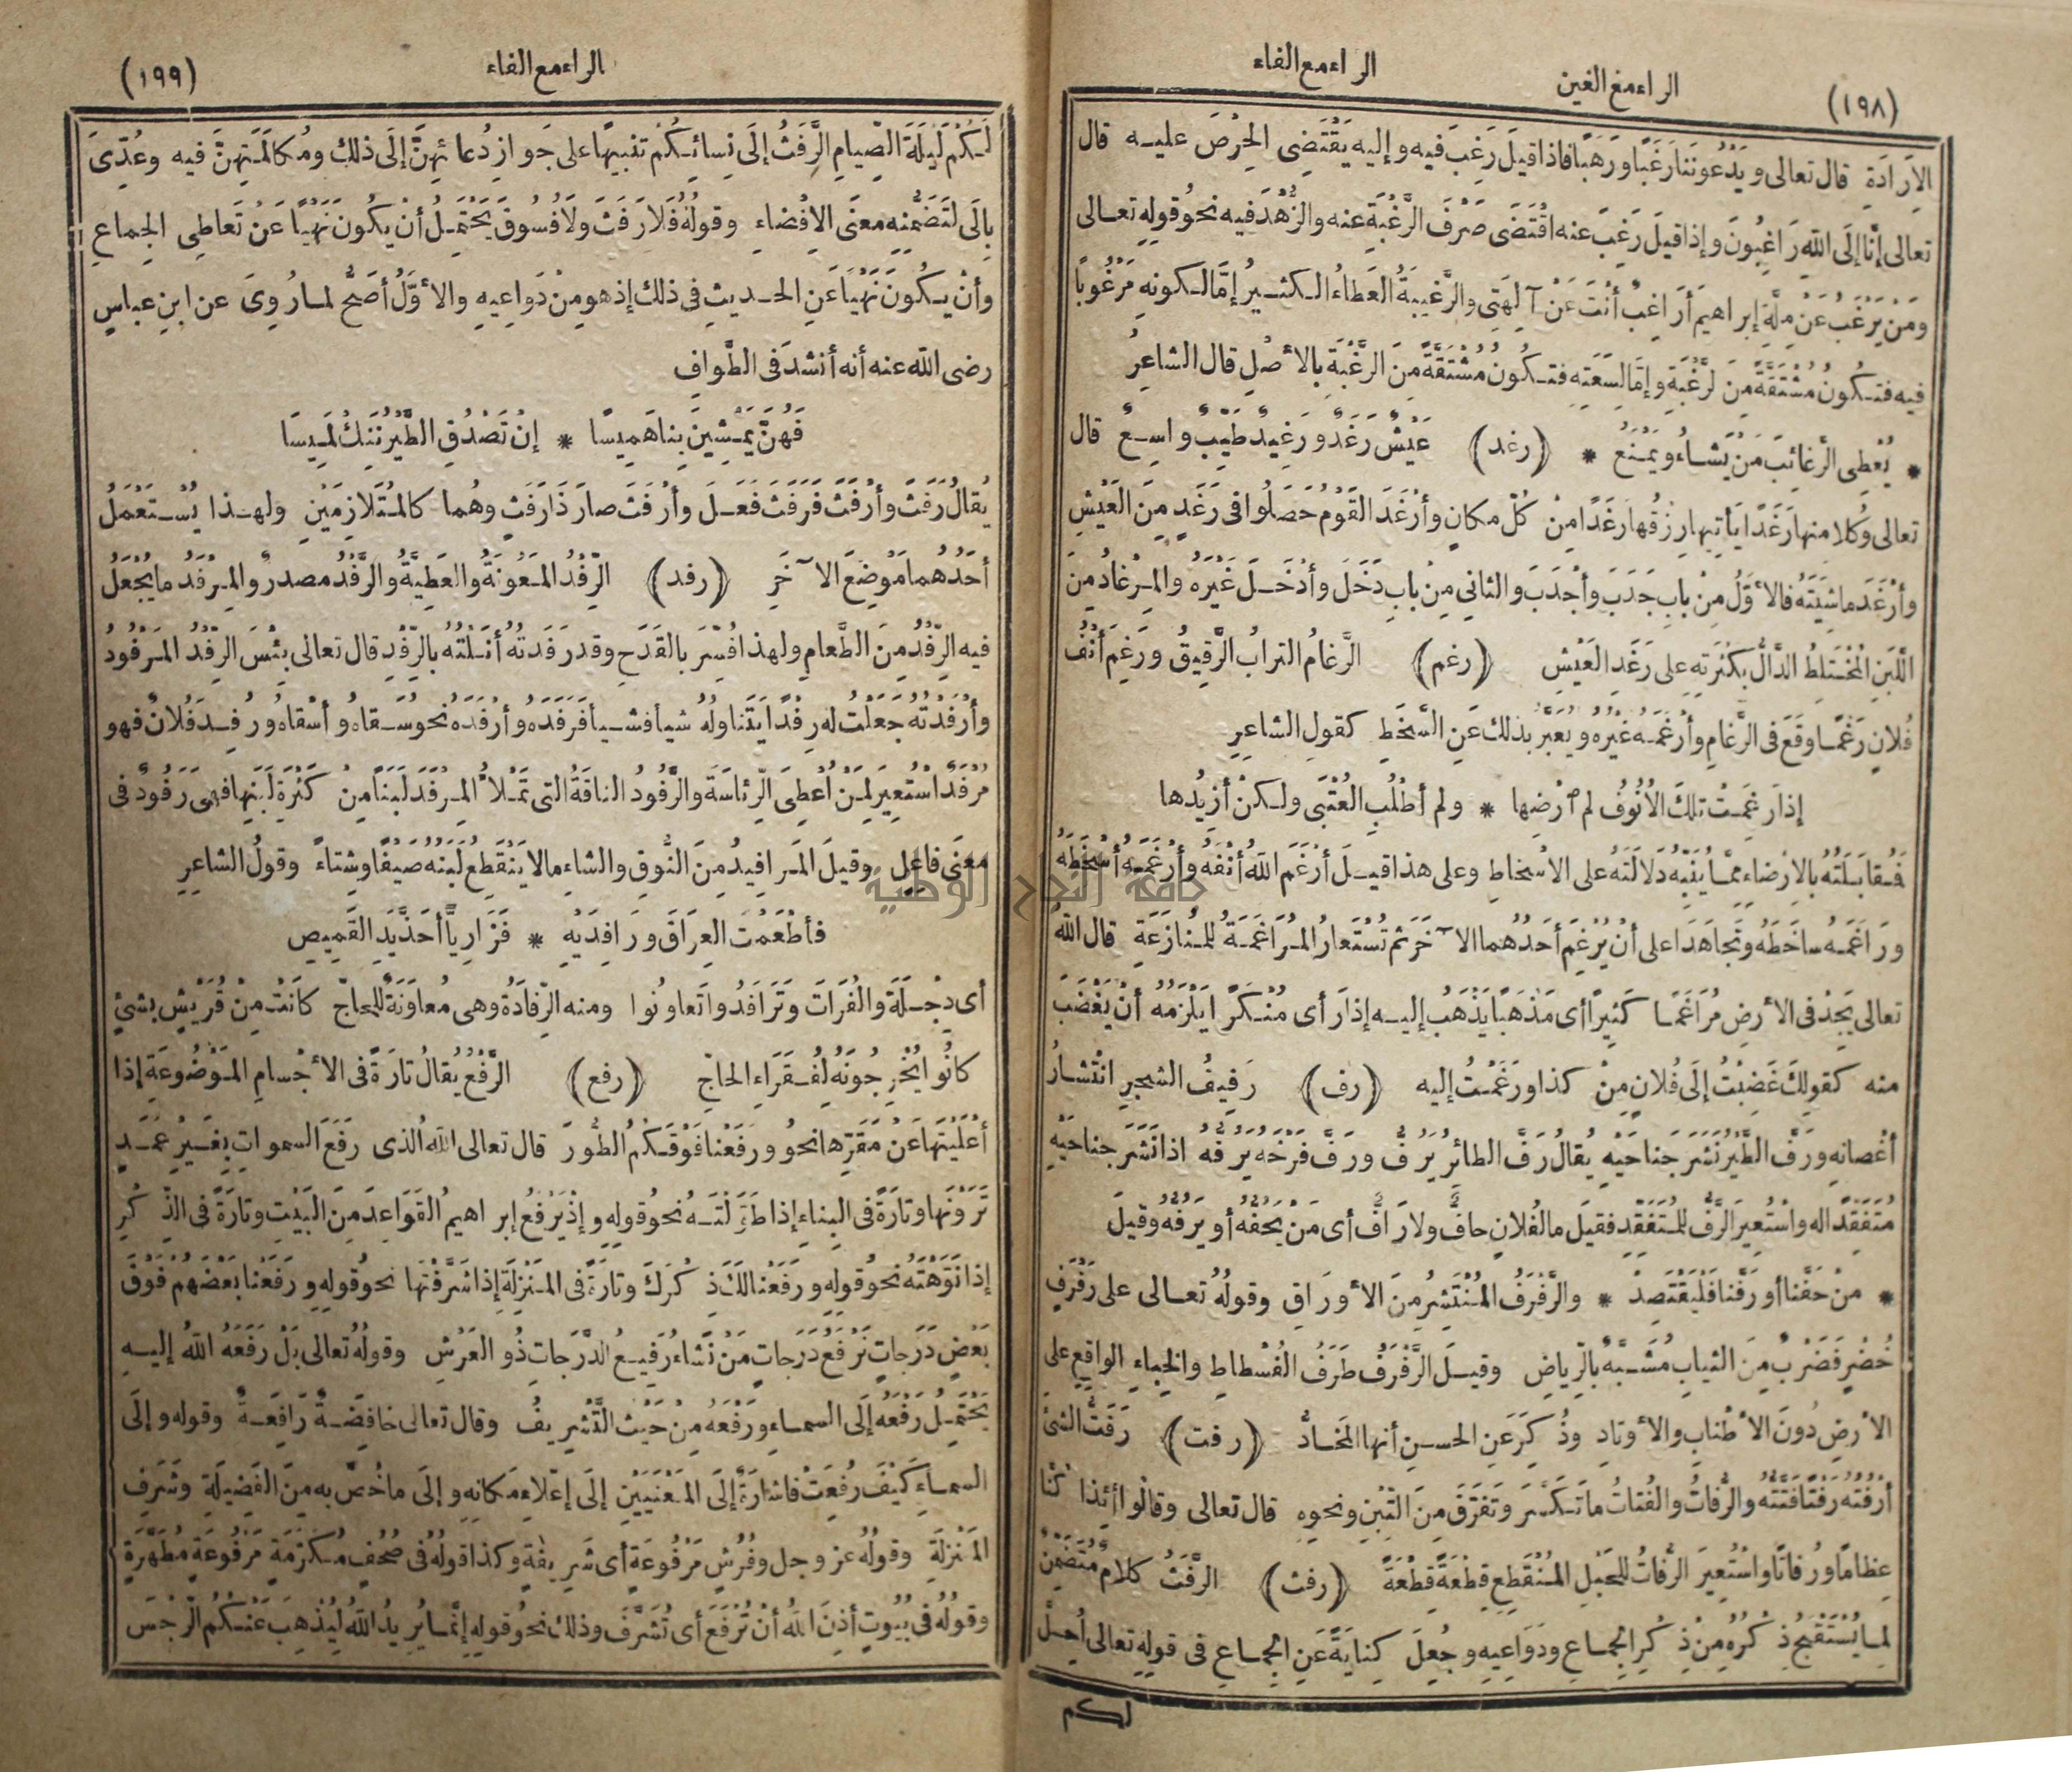 (١٩٨) الراء مع الغين الراء مع الفاء
الإرَادَةِ قال تعالى ويَدْعُونَنَا رَغَبًا ورَهَبًا فاذا قيلَ رَغِبَ فيه وإليه يَقْتَضِى الحِرْصَ عليه قال
تعالى إنَّا إلَى اللهِ رَاغِبُونَ وإذا قيلَ رَغِبَ عنه اقْتَضَى صَرْفَ الرَّغْبَةِ عنه والزُّهْدَ فيه نحوُ قولِهِ تعالى
ومَنْ يَرْغَبُ عَنْ مِلَّةِ إبراهيمَ أرَاغِبٌ أنْتَ عَنْ آلِهَتِى والرَّغِيبَةُ العَطاءُ الكثيرُ إمَّا لكونِهِ مَرْغُوبًا
فيه فتكُونُ مُشْتَقَّةً مِنَ لرَّغْبَةِ وإمَّا لِسَعَتِهِ فتكُونُ مُشْتَقَّةً مِنَ الرَّغْبَةِ بالأصْلِ قال الشاعِرُ
* يُعْطِى الرَّغائِبَ مَنْ يَشَاءُ ويَمْنَعُ * ﴿رغد﴾ عَيْشٌ رَغَدٌ ورَغِيدٌ طَيِّبٌ واسِعٌ قال
تعالى وكُلا منها رَغَدًا يَأْتِيها رِزقُها رَغَدًا مِنْ كُلِّ مكانٍ وأرْغَدَ القَوْمُ حَصَلُوا فى رَغَدٍ مِنَ العَيْشِ
وأرْغَدَ ماشِيَتَهُ فالأَوَّلُ مِنْ بابِ جَدَبَ وأجْدَبَ والثانى مِنْ بابِ دَخَلَ وأدْخَلَ غَيْرَهُ والمِرْغادُ مِنَ
اللَّبَنِ المُخْتَلِطُ الدَّالُّ بكَثْرَتِهِ على رَغَدِ العَيْشِ ﴿رغم﴾ الرَّغامُ الترابُ الرَّقِيقُ ورَغِمَ أنْفُ
فُلانٍ رَغْمًا وقَعَ فى الرَّغامِ وأرْغَمَهُ غَيْرُهُ ويُعَبَّرُ بذلك عَنِ السَّخَطِ كقولِ الشاعِرِ
إذا رَغِمَتْ تلكَ الأُنُوفُ لم ارْضِها * ولم أطْلُبِ العُتْبَى ولكنْ أزِيدُها
فَمُقابَلَتُهُ بالإرْضاءِ مِمَّا يُنَبِّهُ دَلالَتَهُ على الإسْخاطِ وعلى هذا قيلَ أرْغَمَ اللهُ أنْفَهُ وأرْغَمَهُ أسْخَطَهُ
ورَاغَمَهُ ساخَطَهُ وتَجاهَدَا على أنْ يُرْغِمَ أحَدُهُما الآخَرَ ثم تُسْتَعارُ المُرَاغَمَةُ للمُنازَعَةِ قال اللهُ
تعالى يَجِدْ فى الأرضِ مُرَاغَمًا كَثِيرًا أى مَذْهَبًا يَذْهَبُ إليه إذا رَأى مُنْكَرًا يَلْزَمُهُ أنْ يَغْضَبَ
منه كقولِكَ غَضِبْتُ إلَى فُلانٍ مِنْ كذا ورَغَمْتُ إليه ﴿رف﴾ رَفِيفُ الشجرِ انْتشارُ
أغْصانِهِ ورَفَّ الطَّيْرُ نَشَرَ جَناحَيْهِ يُقالُ رَفَّ الطائِرُ يَرُفُّ ورَفَّ فَرْخَهُ يَرُفُّهُ اذا نَشَرَ جَناحَيْهِ
مُتَفَقِّدًا له واسْتُعِيرَ الرَّفُّ للمُتَفَقِّدِ فقيلَ ما لفُلانٍ حافٌّ ولا رَافٌّ أى مَنْ يَحُفُّهُ أو يَرُفُّهُ وقيلَ
* مَنْ حَفَّنا أو رَفَّنا فَلْيَقْتَصِدْ * والرَّفْرَفُ المُنْتَشِرُ مِنَ الأوْرَاقِ وقولُهُ تعالى على رَفْرَفٍ
خُضْرٍ فَضَرْبٌ مِنَ الثيابِ مُشَبَّهٌ بالرِّياضِ وقيلَ الرَّفْرَفُ طَرَفُ الفُسْطاطِ والخِباءِ الواقِعِ على
الأرضِ دُونَ الأطْنابِ والأوْتادِ وذُكِرَ عَنِ الحسنِ أنها المَخَادُّ ﴿رفت﴾ رَفَتُّ الشئَ
أرْفُتُهُ رَفْتًا فَتَّتُّهُ والرُّفاتُ والفُتاتُ ما تَكَسَّرَ وتَفَرَّقَ مِنَ التِّبْنِ ونحوِهِ قال تعالى وقالُوا أئِذا كُنَّا
عِظامًا ورُفاتًا واسْتُعِيرَ الرُّفاتُ للحَبْلِ المُنْقَطِعِ قِطْعَةً قِطْعَةً ﴿رفث﴾ الرَّفَثُ كلامٌ مُتَضَمِّنٌ
لِما يُسْتَقْبَحُ ذِكْرُهُ مِنْ ذِكْرِ الجِماعِ ودَوَاعِيهِ وجُعِلَ كِنايَةً عَنِ الجِماعِ فى قولِهِ تعالى أُحِلَّ
لكم
الراء مع الفاء (١٩٩)
لَكُمْ لَيْلَةَ الصِّيامِ الرَّفَثُ إلَى نِسائِكُمْ تنبيهًا على جَوازِ دُعائِهِنَّ إلَى ذلك ومُكالَمَتِهِنَّ فيه وعُدِّىَ
بإلَى لتَضَمُّنِهِ معنَى الإفْضاءِ وقولُهُ فَلا رَفَثَ ولا فُسُوقَ يَحْتَمِلُ أنْ يكُونَ نَهْيًا عَنْ تَعاطِى الجِماعِ
وأنْ يكُونَ نَهْيًا عَنِ الحديثِ فى ذلك إذ هو مِنْ دَوَاعِيهِ والأوَّلُ أصَحُّ لما رُوِىَ عن ابنِ عباسٍ
رضى الله عنه أنه أنشدَ فى الطَّوافِ
فَهُنَّ يَمْشِينَ بِنا هَمِيسًا * إنْ تَصْدُقِ الطَّيْرُ نَنِكْ لَمِيسَا
يُقالُ رَفَثَ وأرْفَثَ فَرَفَثَ فَعَلَ وأرْفَثَ صارَ ذَا رَفَثٍ وهُما كالمُتَلازِمَيْنِ ولهذا يُسْتَعْمَلُ
أحَدُهُما مَوْضِعَ الآخَرِ ﴿رفد﴾ الرِّفْدُ المَعُونَةُ والعَطِيَّةُ والرَّفْدُ مصدرٌ والمِرْفَدُ ما يُجْعَلُ
فيه الرِّفْدُ مِنَ الطَّعامِ ولهذا فُسِّرَ بالقَدَحِ وقد رَفَدْتُهُ أنَلْتُهُ بالرِّفْدِ قال تعالى بِئْسَ الرِّفْدُ المَرْفُودُ
وأرْفَدْتُهُ جَعَلْتُ له رِفْدًا يَتَناوَلُهُ شيأ فشيأ فَرَفَدَهُ وأرْفَدَهُ نحوُ سَقاهُ وأسْقاهُ ورُفِدَ فُلانٌ فهو
مُرْفَدٌ اسْتُعِيرَ لِمَنْ أُعْطِىَ الرِّئاسَةَ والرَّفُودُ الناقَةُ التى تَمْلَأُ المِرْفَدَ لَبَنًا مِنْ كَثْرَةِ لَبَنِها فهى رَفُودٌ فى
معنَى فاعِلٍ وقيلَ المَرَافِيدُ مِنَ النُّوقِ والشاءِ ما لا يَنْقَطِعُ لَبَنُهُ صَيْفًا وشِتاءً وقولُ الشاعِرِ
فأطْعَمْتَ العِرَاقَ ورَافِدَيْهِ * فَزَارِيًّا أحَذَّ يَدِ القَمِيصِ
أى دِجْلَةَ والفُرَاتَ وتَرَافَدُوا تَعاوَنُوا ومنه الرِّفادَةُ وهى مُعاوَنَةٌ للحاجِّ كانَتْ مِنْ قُرَيْشٍ بشئٍ
كانُوا يُخْرِجُونَهُ لفُقَرَاءِ الحاجِّ ﴿رفع﴾ الرَّفْعُ يُقالُ تارَةً فى الأجْسامِ المَوْضُوعَةِ إذا
أعْلَيْتَها عَنْ مَقَرِّها نحوُ ورَفَعْنا فَوْقَكُمُ الطُّورَ قال تعالى اللهُ الذى رَفَعَ السمواتِ بِغَيْرِ عَمَدٍ
تَرَوْنَها وتارَةً فى البِناءِ إذا طَوَّلْتَهُ نحوُ قولِهِ وإذْ يَرْفَعُ إبراهيمُ القَوَاعِدَ مِنَ البَيْتِ وتارَةً فى الذِّكْرِ
إذا نَوَّهْتَهُ نحوُ قولِهِ ورَفَعْنا لَكَ ذِكْرَكَ وتارَةً فى المَنْزِلَةِ إذا شَرَّفْتَها نحوُ قولِهِ ورَفَعْنا بَعْضَهُمْ فَوْقَ
بَعْضٍ دَرَجاتٍ نَرْفَعُ دَرَجاتٍ مَنْ نَشاءُ رَفِيعُ الدَّرَجاتِ ذُو العَرْشِ وقولُهُ تعالى بَلْ رَفَعَهُ اللهُ إليه
يَحْتَمِلُ رَفْعَهُ إلَى السماءِ ورَفْعَهُ مِنْ حَيْثُ التَّشْرِيفُ وقال تعالى خافِضَةٌ رَافِعَةٌ وقوله وإلَى
السماءِ كَيْفَ رُفِعَتْ فإشارَةٌ إلَى المَعْنَيَيْنِ إلَى إعْلاءِ مَكانِهِ وإلَى ما خُصَّ به مِنَ الفَضِيلَةِ وشَرَفِ
المَنْزِلَةِ وقولُهُ عز وجل وفُرُشٍ مَرْفُوعَةٍ أى شَرِيفَةٍ وكذا قولُهُ فى صُحُفٍ مُكَرَّمَةٍ مَرْفُوعَةٍ مُطَهَّرَةٍ
وقولُهُ فى بُيُوتٍ أذِنَ اللهُ أنْ تُرْفَعَ أى تُشَرَّفَ وذلك نحوُ قولِهِ إنَّما يُرِيدُ اللهُ لِيُذْهِبَ عَنْكُمُ الرِّجْسَ
جامعة النجاح الوطنية